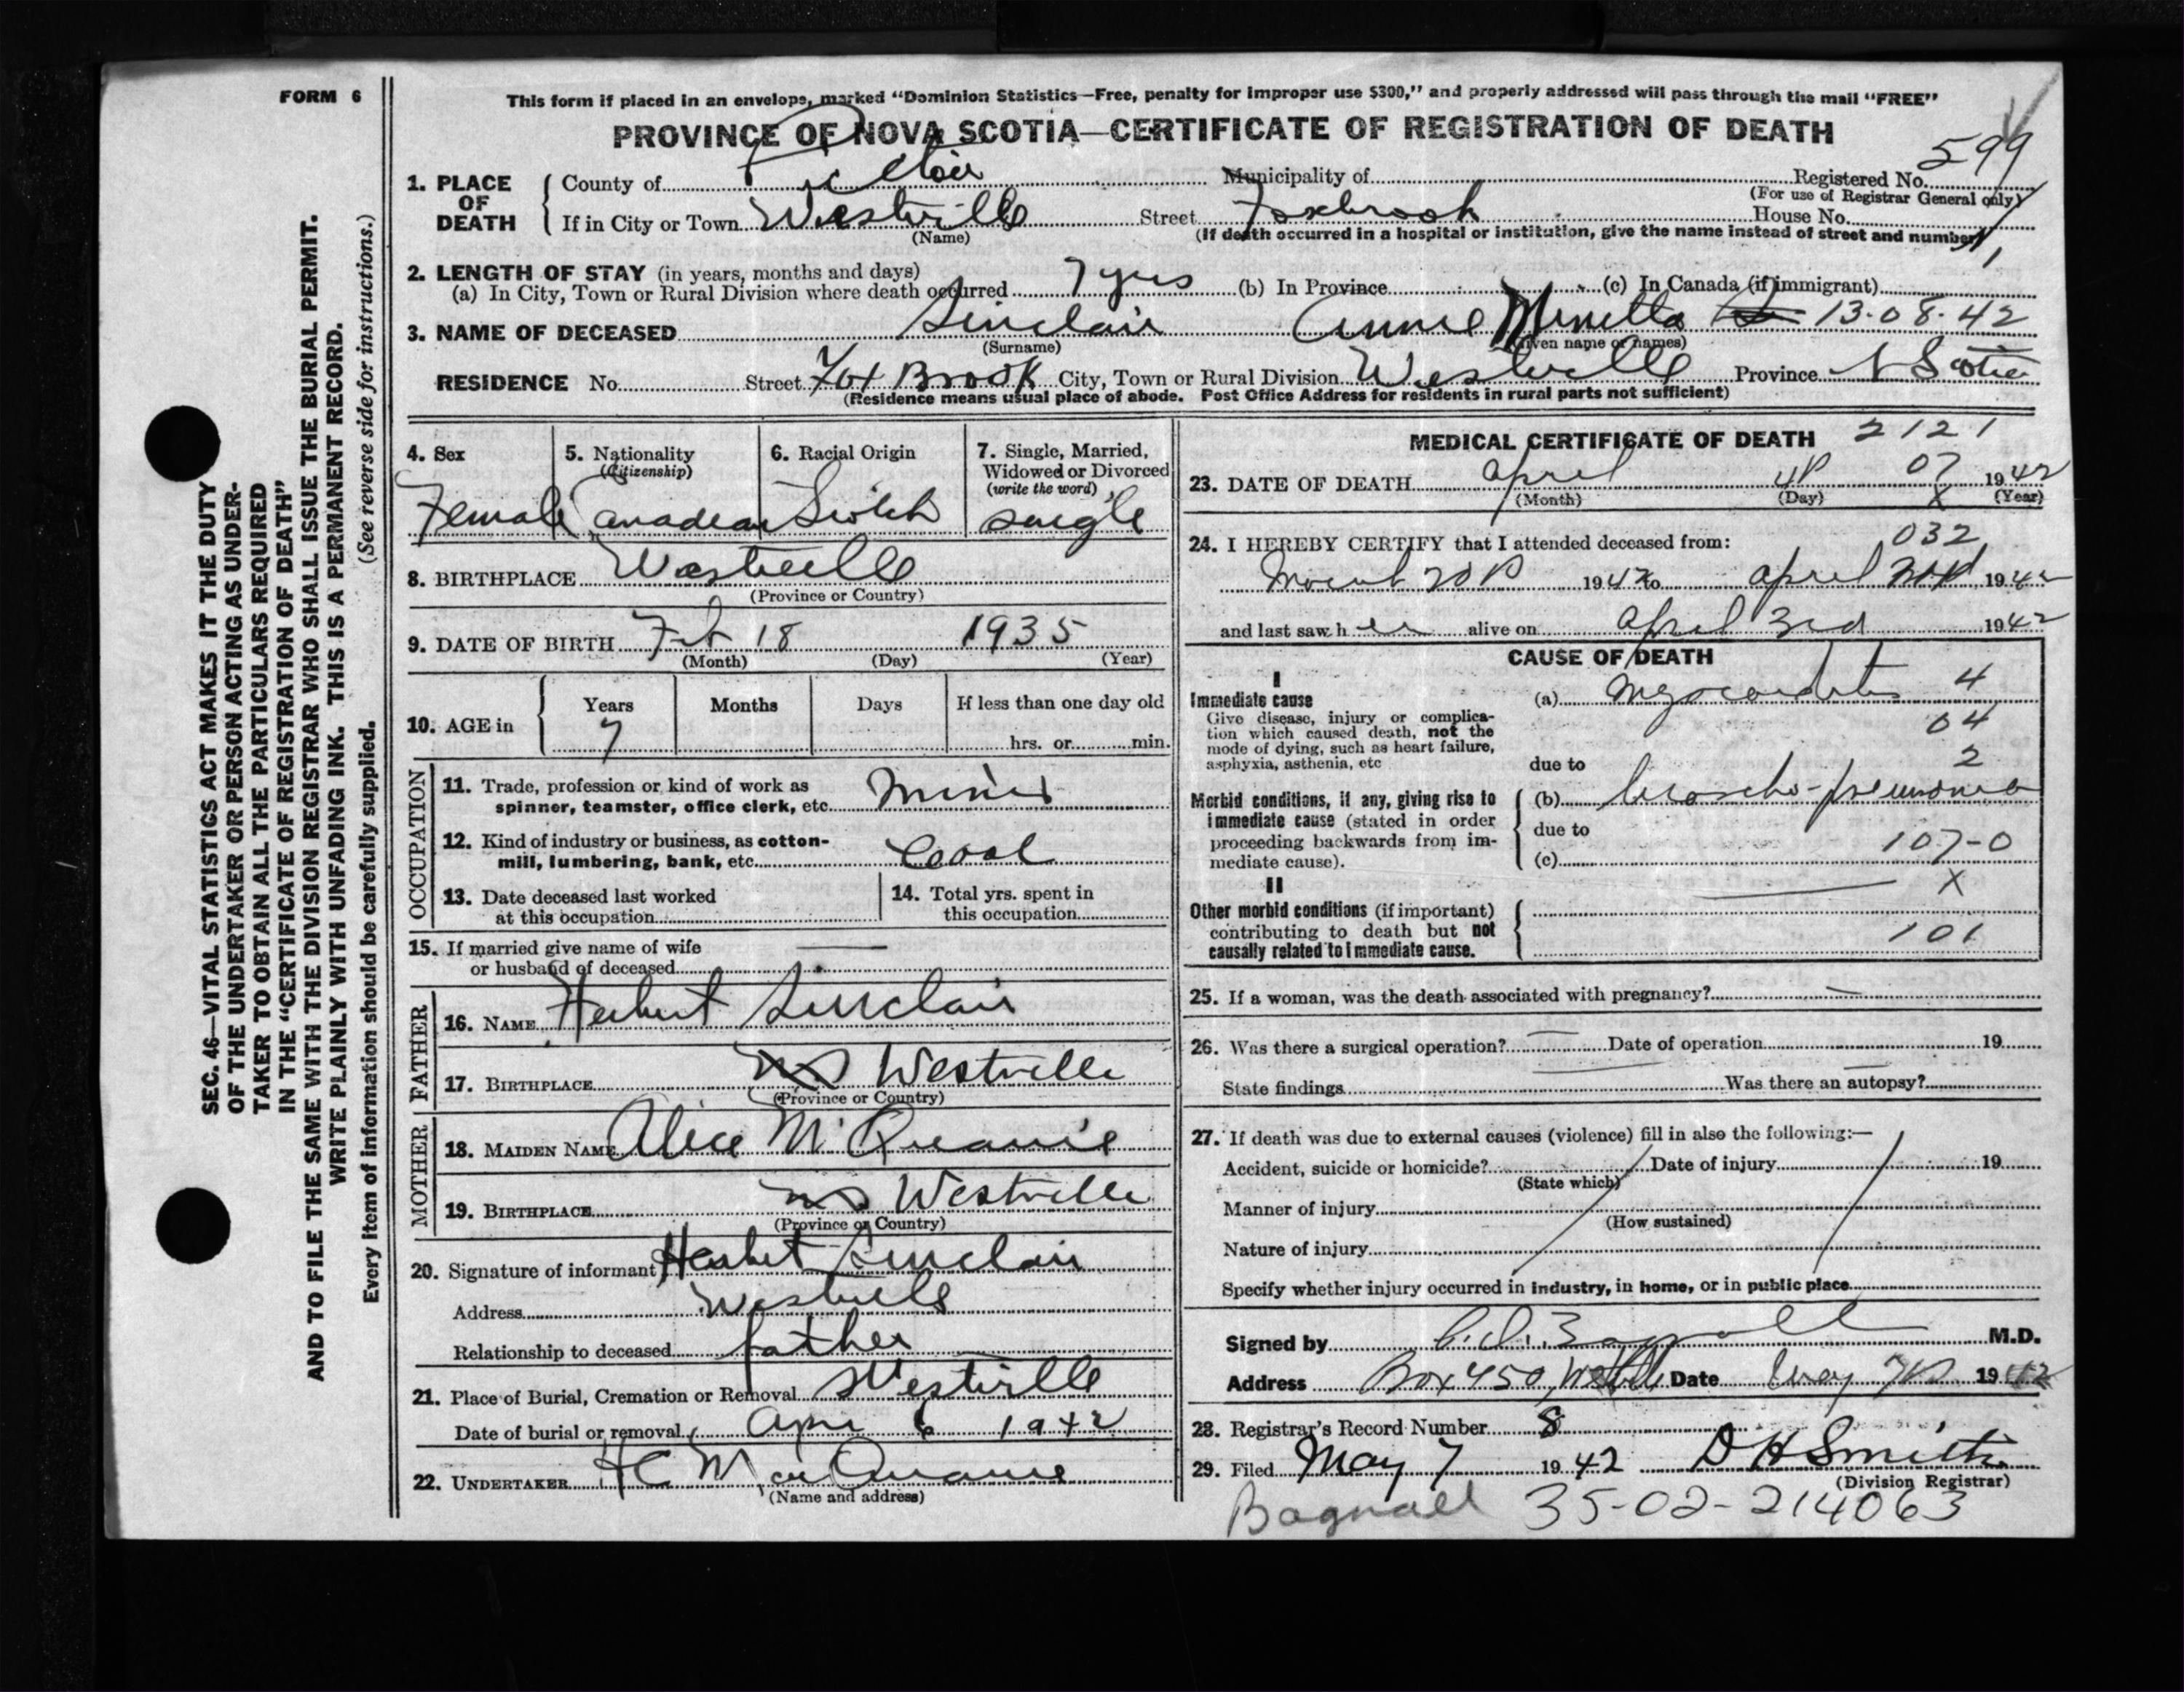 FORM 6
This form if placed in an envelope, marked "Dominion Statistics—Free, penalty for improper use $300," and properly addressed will pass through the mail "FREE"
PROVINCE OF NOVA SCOTIA—CERTIFICATE OF REGISTRATION OF DEATH
1. PLACE OF DEATH
County of Pictou Municipality of Registered No. 599
(For use of Registrar General only)
If in City or Town Westville Street Foxbrook House No.
(Name) (If death occurred in a hospital or institution, give the name instead of street and number)
2. LENGTH OF STAY (in years, months and days)
(a) In City, Town or Rural Division where death occurred 7 yrs (b) In Province (c) In Canada (if immigrant)
3. NAME OF DECEASED Sinclair Annie Minetta 13-08-42
(Surname) (Given name or names)
RESIDENCE No. Street Fox Brook City, Town or Rural Division Westville Province N Scotia
(Residence means usual place of abode. Post Office Address for residents in rural parts not sufficient)
4. Sex 5. Nationality (Citizenship) 6. Racial Origin 7. Single, Married, Widowed or Divorced (write the word)
Female Canadian Scotch single
8. BIRTHPLACE Westville
(Province or Country)
9. DATE OF BIRTH Feb 18 1935
(Month) (Day) (Year)
10. AGE in Years Months Days If less than one day old
7 hrs. or min.
OCCUPATION
11. Trade, profession or kind of work as
spinner, teamster, office clerk, etc. Miner
12. Kind of industry or business, as cotton-
mill, lumbering, bank, etc. Coal
13. Date deceased last worked
at this occupation
14. Total yrs. spent in
this occupation
15. If married give name of wife
or husband of deceased
FATHER
16. NAME Herbert Sinclair
17. BIRTHPLACE NS Westville
(Province or Country)
MOTHER
18. MAIDEN NAME Alice
19. BIRTHPLACE NS Westville
(Province or Country)
20. Signature of informant Herbert Sinclair
Address Westville
Relationship to deceased father
21. Place of Burial, Cremation or Removal Westville
Date of burial or removal 6 1942
22. UNDERTAKER H C
(Name and address)
MEDICAL CERTIFICATE OF DEATH 2121
23. DATE OF DEATH April 07 1942
(Month) (Day) X (Year)
24. I HEREBY CERTIFY that I attended deceased from: 032
1942 to April 1942
and last saw her alive on April 3rd 1942
CAUSE OF DEATH
I
Immediate cause
Give disease, injury or complica-
tion which caused death, not the
mode of dying, such as heart failure,
asphyxia, asthenia, etc
(a) Myocarditis 4
04
due to 2
Morbid conditions, if any, giving rise to
immediate cause (stated in order
proceeding backwards from im-
mediate cause).
(b) broncho-pneumonia
due to
107-0
(c)
X
II
Other morbid conditions (if important)
contributing to death but not
causally related to immediate cause.
101
25. If a woman, was the death associated with pregnancy?
26. Was there a surgical operation? Date of operation 19
State findings Was there an autopsy?
27. If death was due to external causes (violence) fill in also the following:—
Accident, suicide or homicide? Date of injury 19
(State which)
Manner of injury
(How sustained)
Nature of injury
Specify whether injury occurred in industry, in home, or in public place
Signed by Bagnall M.D.
Address Box 450, Date May 1942
28. Registrar's Record Number 8
29. Filed May 7 1942 D H Smith
(Division Registrar)
Bagnall 35-02-214063
SEC. 46—VITAL STATISTICS ACT MAKES IT THE DUTY
OF THE UNDERTAKER OR PERSON ACTING AS UNDER-
TAKER TO OBTAIN ALL THE PARTICULARS REQUIRED
IN THE "CERTIFICATE OF REGISTRATION OF DEATH"
AND TO FILE THE SAME WITH THE DIVISION REGISTRAR WHO SHALL ISSUE THE BURIAL PERMIT.
WRITE PLAINLY WITH UNFADING INK. THIS IS A PERMANENT RECORD.
Every item of information should be carefully supplied. (See reverse side for instructions.)